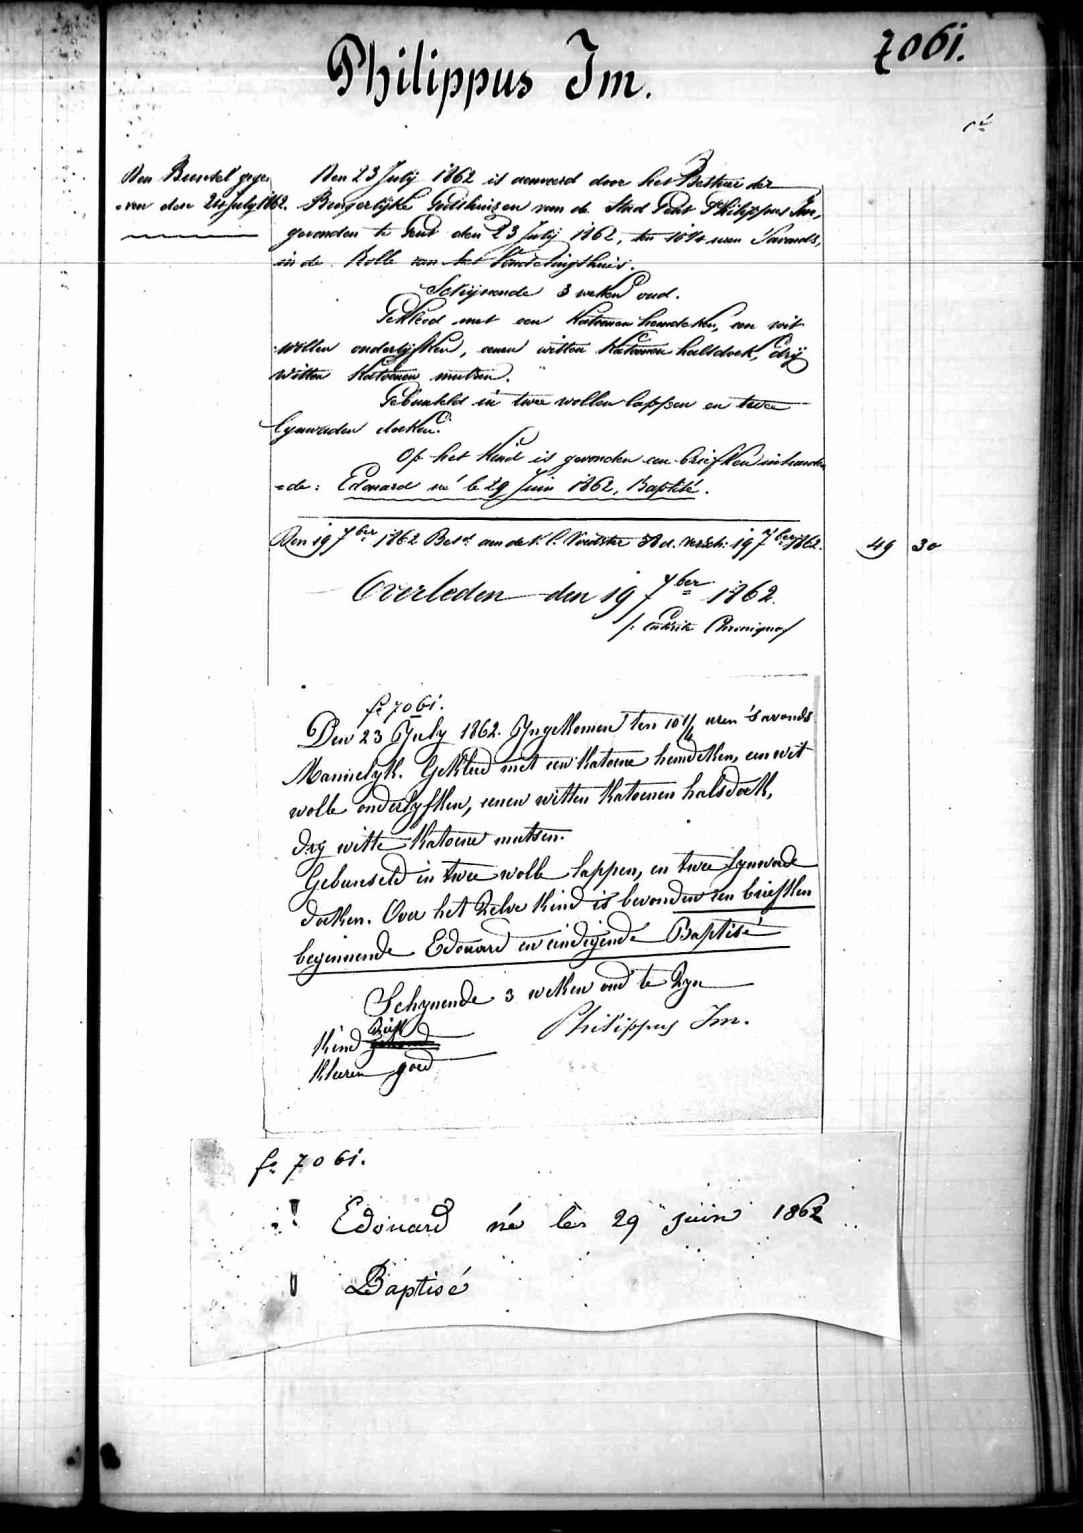 7061.
Philippus Im.
Den Bundel gege-
-ven den 24 July 1862.
Den 23 July 1862 is aenveerd door het Bestuur der
Burgerlyke Godshuizen van de Stad Gent Philippus Im,
gevonden te Gent den 23 July 1862, ten 10¼ uren 'Savonds,
in de Rolle van het Vondelingshuis.
Schijnende 3 weken oud.
Gekleed met een Katoenen hemdeken, een wit
wollen onderlijfken, eenen witten Katoenen halsdoek, drij
witten Katoenen mutsen.
Gebunseld in twee wollen lappen en twee
lynwaden doeken.
Op het Kind is gevonden een briefken inhouden-
=de: Edouard né le 29 Juin 1862, Baptisé.
Den 19 7ber 1862 Best. aen de 19 7ber 1862. 49 30
Overleden den 19 7ber 1862.
fo 7061.
Den 23 July 1862. Yngekomen ten 10 1/4 uren 'savonds
Mannelyk. Gekleed met een Katoene hemdeken, een wit
wolle onderlyfken, eenen witten Katoenen halsdoek,
dry witte Katoene mutsen.
Gebunseld in twee wolle lappen, en twee lynwade
doeken. Over het Zelve Kind is bevonden een briefken
beginnende Edouard en eindigende Baptisé
Schynende 3 weken oud te Zyn
Philippus Im.
Kind
Kleeren goed
fo 7061.
Edouard né les 29 juin 1862
Baptisé